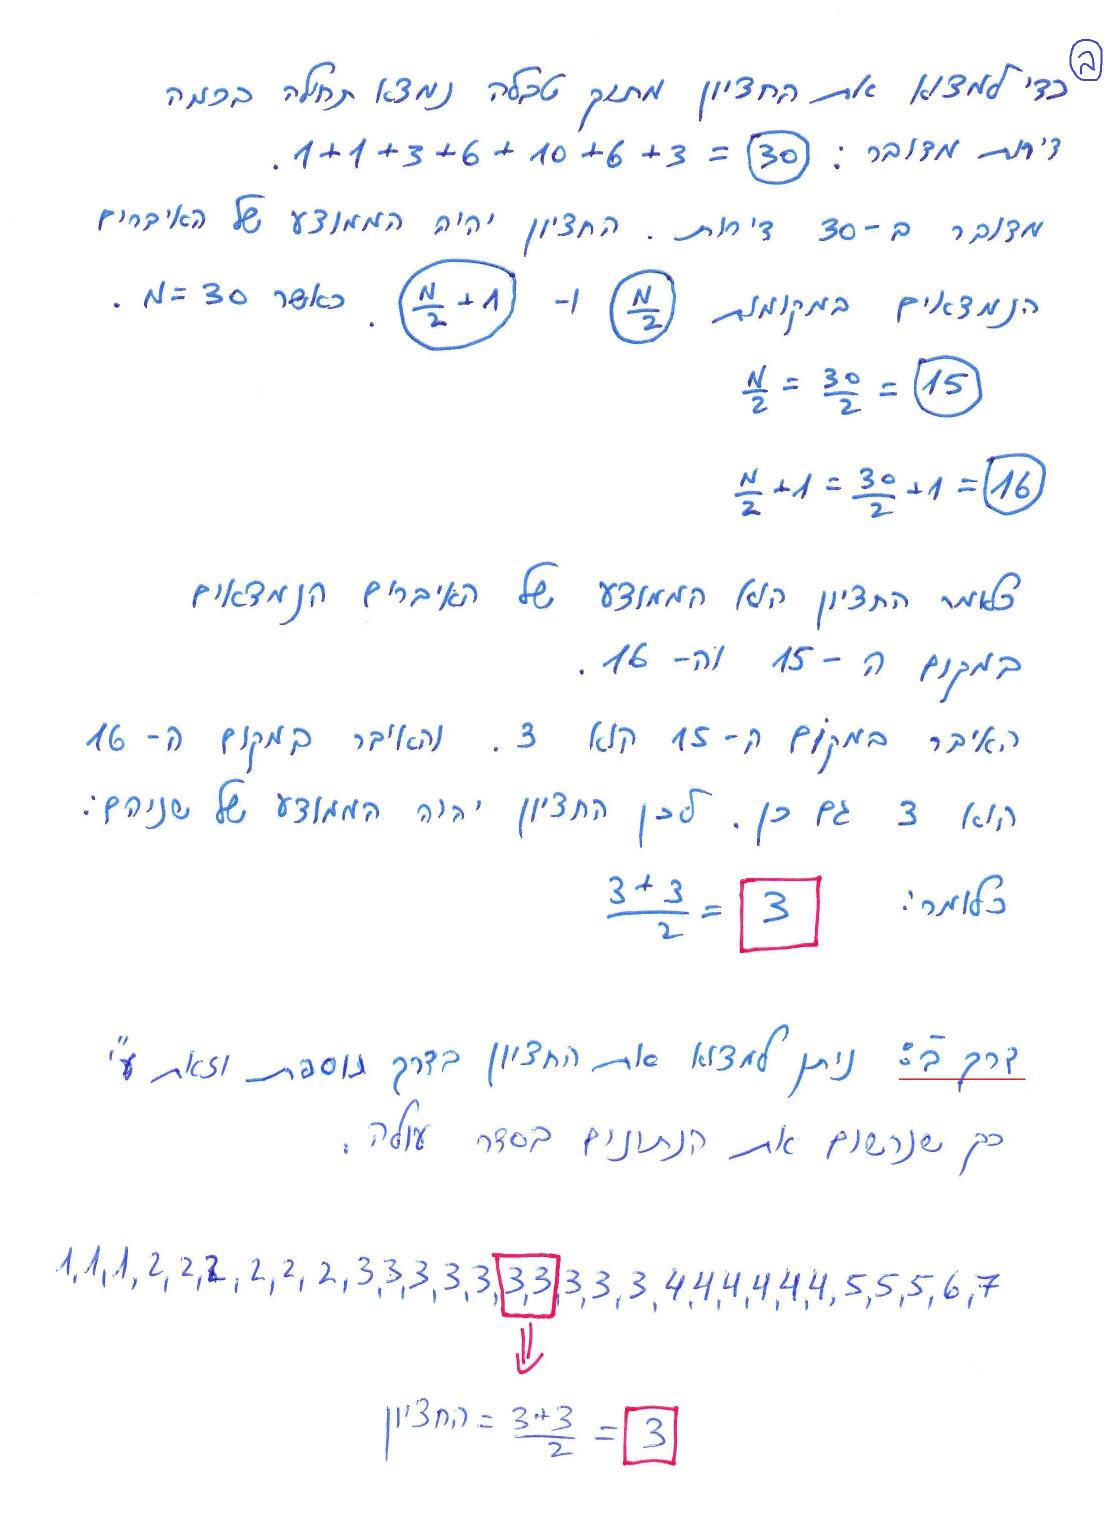 ב
כדי למצוא את החציון מתוך טבלה נמצא תחילה בכמה
דירות מדובר : 1+1+3+6+10+6+3 = 30 .
מדובר ב-30 דירות . החציון יהיה הממוצע של האיברים
הנמצאים במקומות N/2 ו- N/2 + 1 . כאשר N=30 .
N/2 = 30/2 = 15
N/2 + 1 = 30/2 + 1 = 16
כלומר החציון הוא הממוצע של האיברים הנמצאים
במקום ה-15 וה-16 .
האיבר במקום ה-15 הוא 3 . והאיבר במקום ה-16
הוא 3 גם כן . לכן החציון יהיה הממוצע של שניהם :
כלומר : (3+3)/2 = 3
דרך ב : ניתן למצוא את החציון בדרך נוספת וזאת ע"י
כך שנרשום את הנתונים בסדר עולה .
1,1,1,2,2,2,2,2,2,3,3,3,3,3,3,3,3,3,3,4,4,4,4,4,4,5,5,5,6,7
החציון = (3+3)/2 = 3